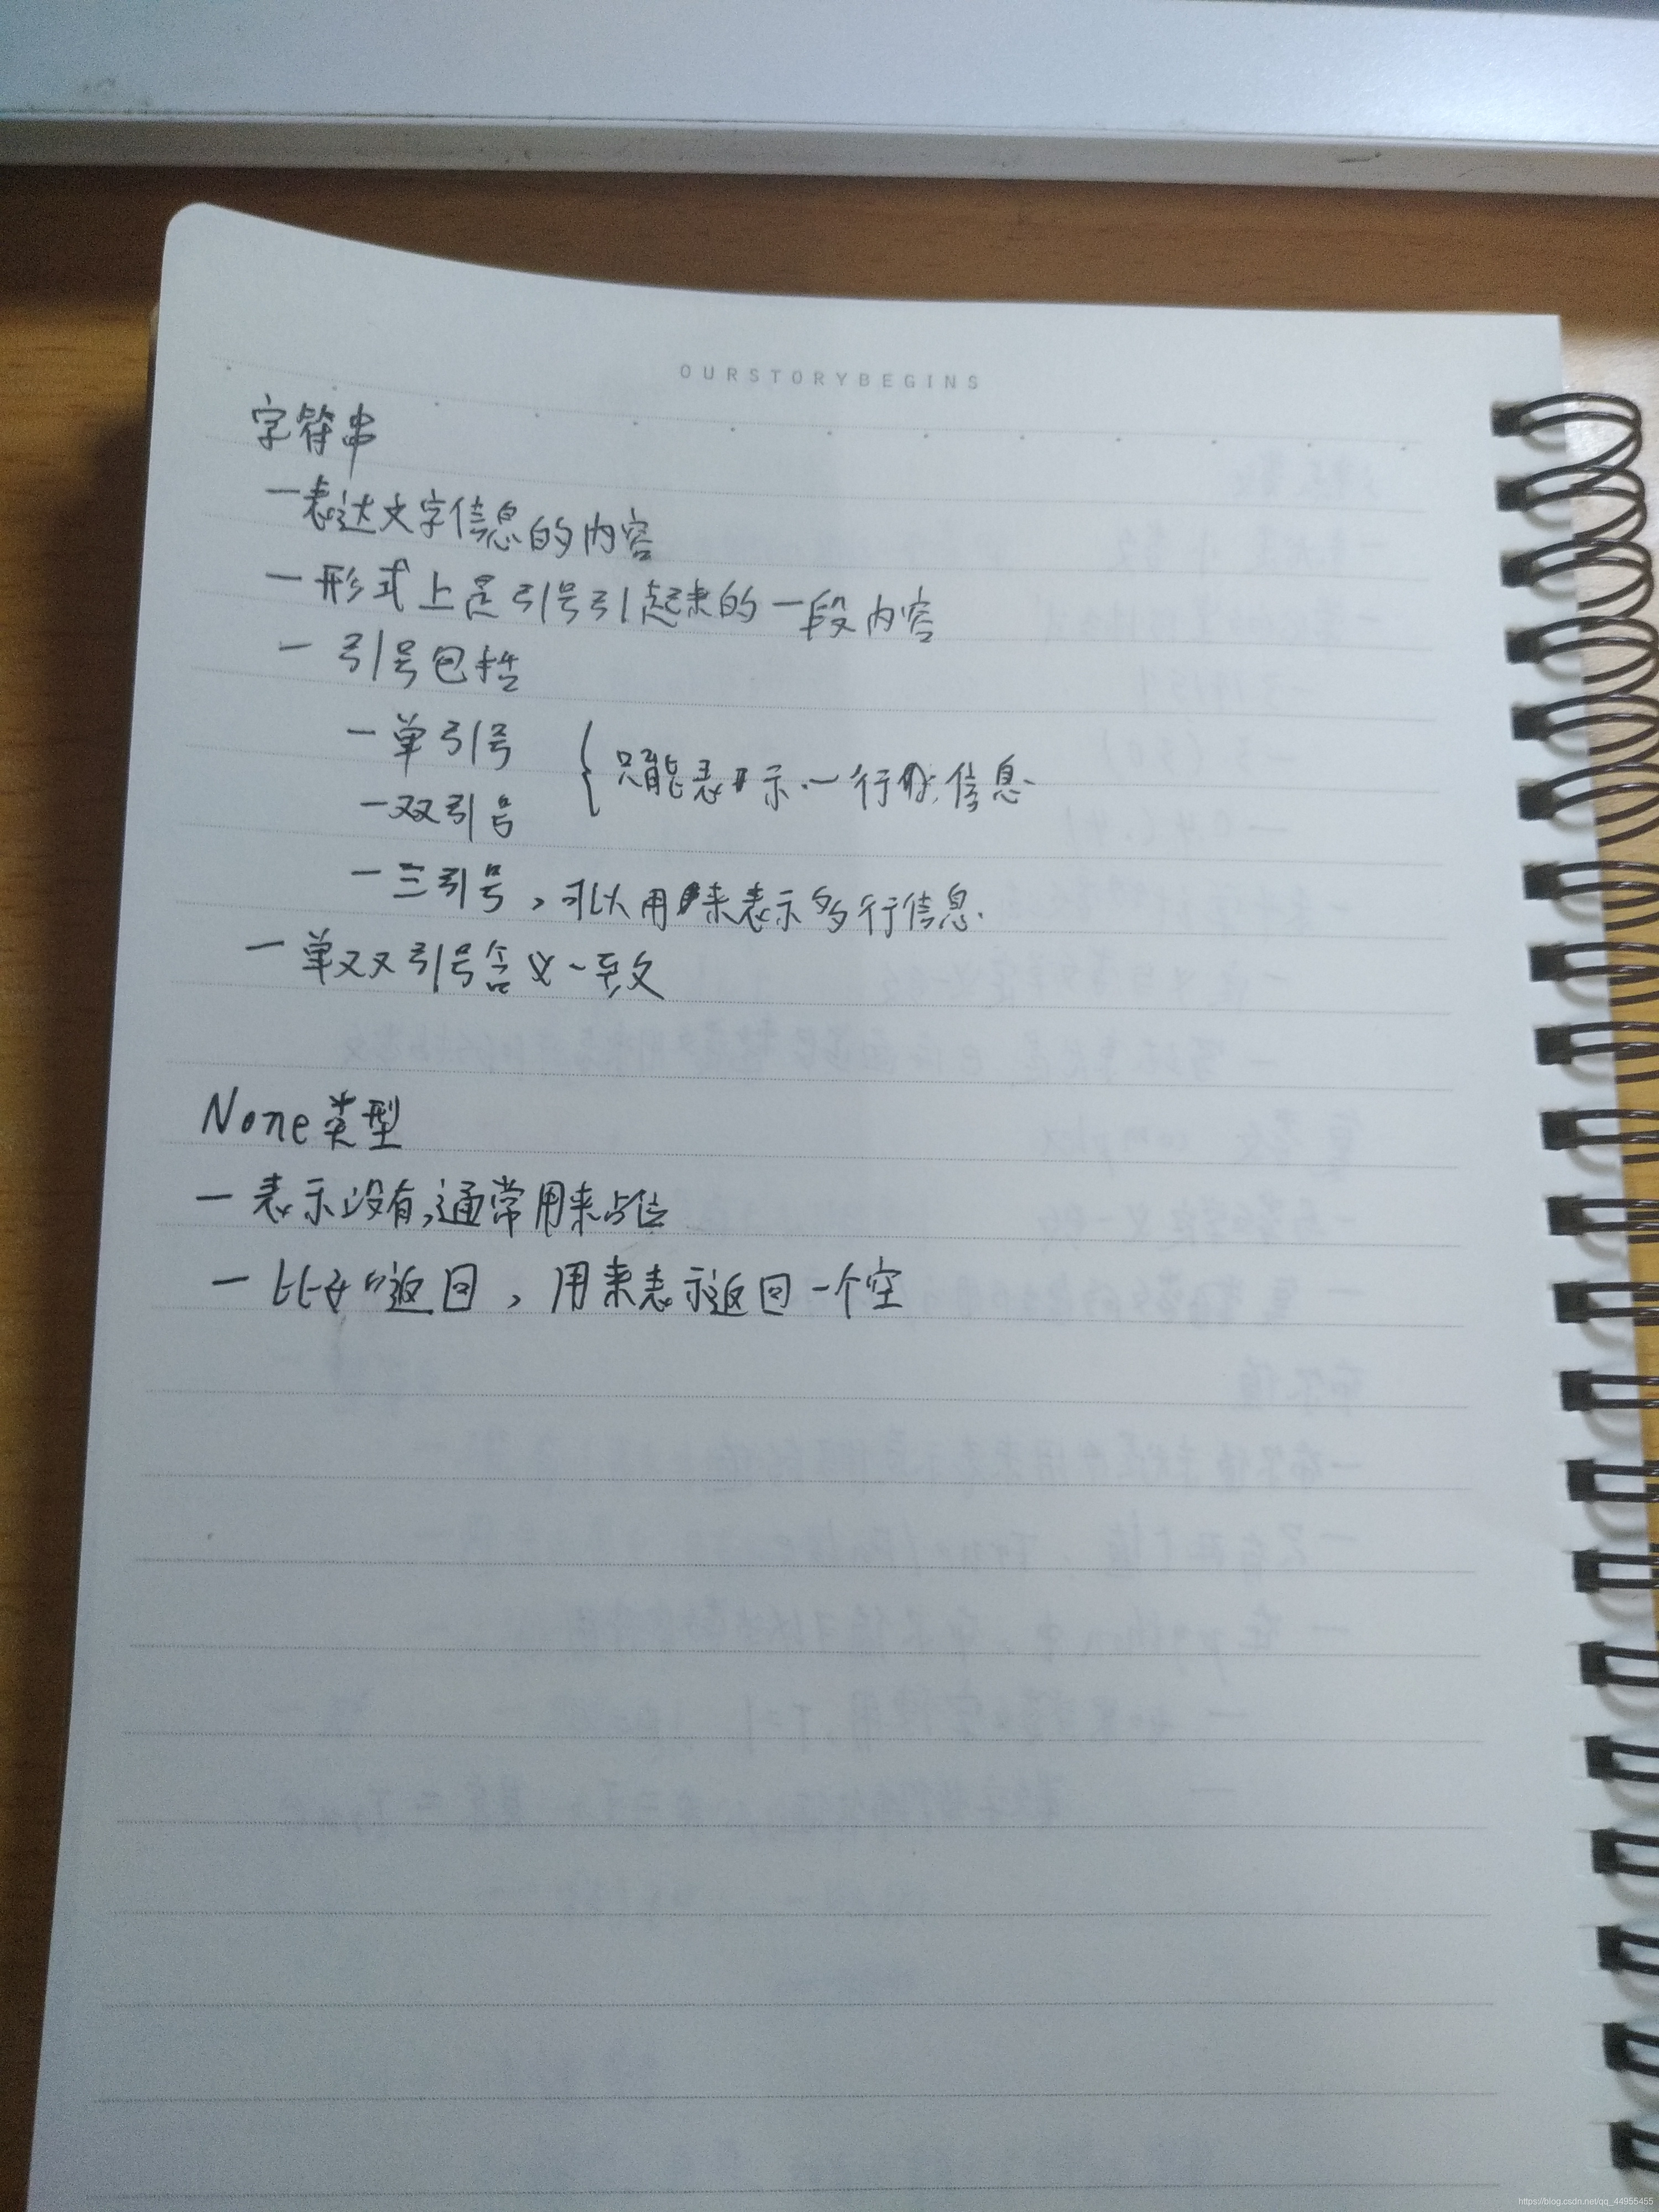 OURSTORYBEGINS
字符串
一表达文字信息的内容
一 形式上是引号引起来的一段内容
一 引号包括
一单引号 { 只能表示一行的信息
一双引号
一三引号，可以用来表示多行信息.
一 单双引号含义一致
None类型
一 表示没有,通常用来占位
一 比如返回，用来表示返回一个空
https://blog.csdn.net/qq_44955455